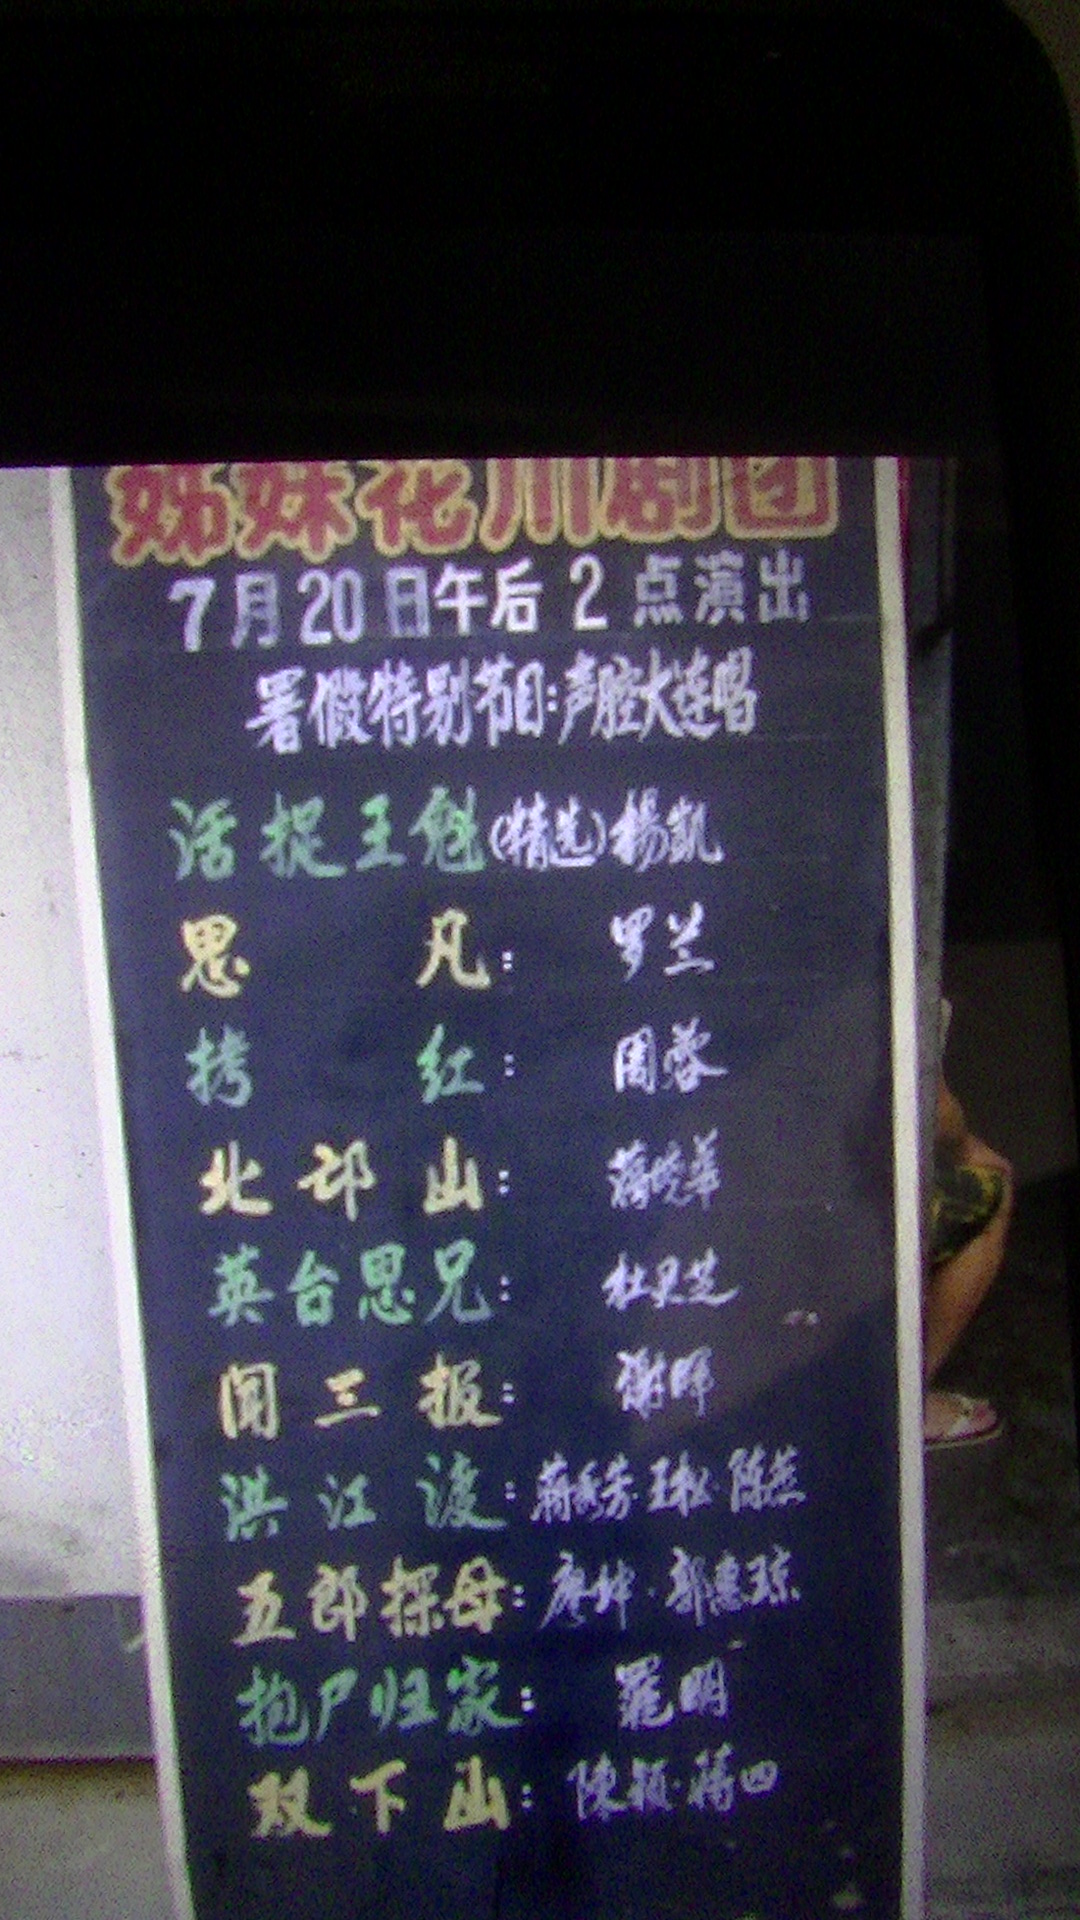 姊妹花川剧团
7月20日午后2点演出
署假特别节目:声腔大连唱
活捉王魁(精选)楊凱
思凡: 罗兰
拷红: 周蓉
北邙山: 蒋晓华
英台思兄: 杜見芝
闻三报: 谢晖
洪江渡: 蒋秀芳·王松·陈燕
五郎探母: 廖坤·郭惠琼
抱尸归家: 羅明
双下山: 陳穎·蒋四